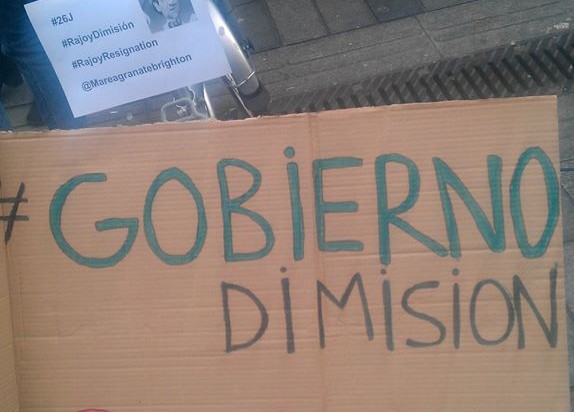 #26J
#RajoyDimisión
#RajoyResignation
@Mareagranatebrighton
#GOBiERNO
DiMiSiON